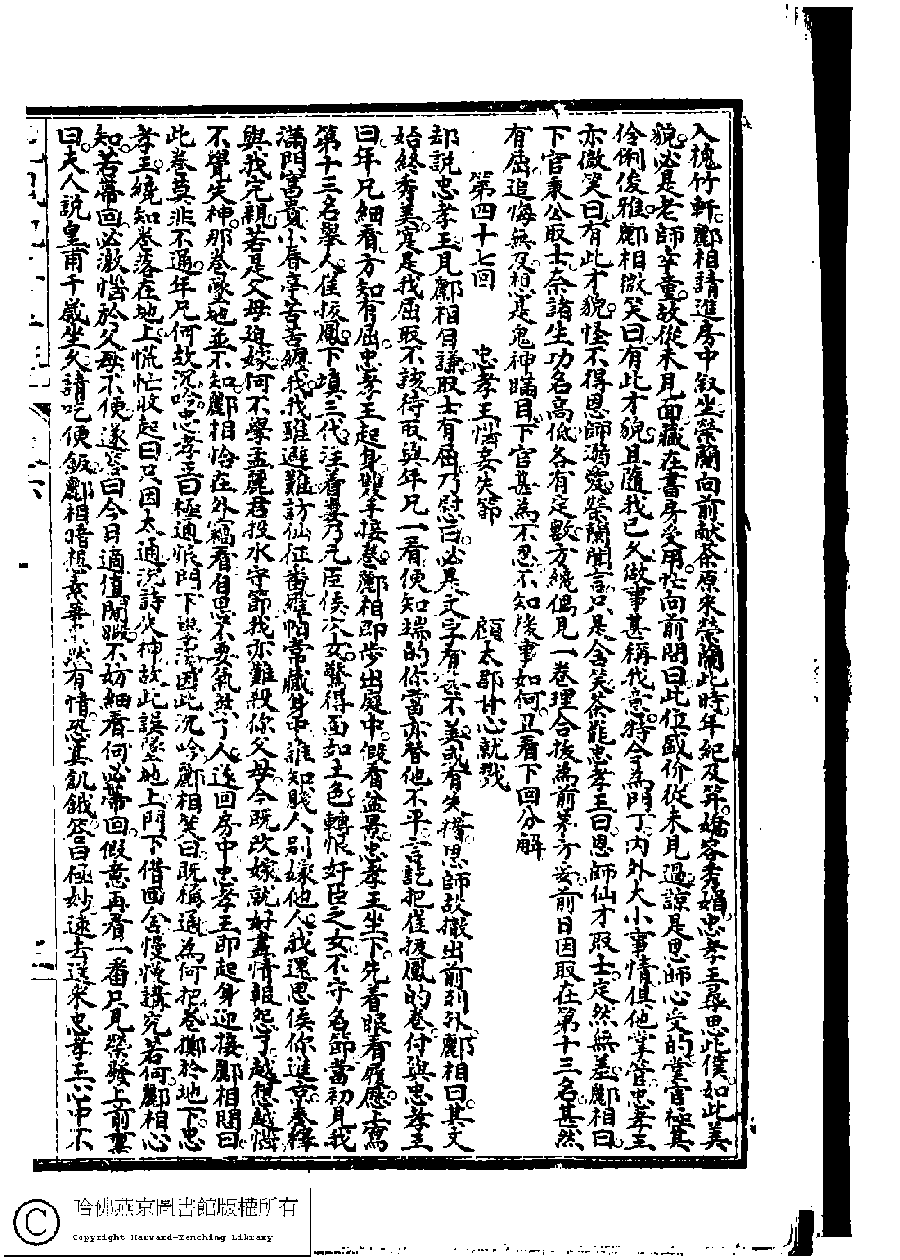 入槐竹軒。酈相請進房中叙坐。榮蘭向前献茶。原來榮蘭此時年紀及笄。嬌容秀媚。忠孝王尋思。此僕如此美
貌。必是老師幸童。故從未見面。藏在書房受用。忙向前問曰。此位盛价從未見過。諒是恩師心爱的堂官。極其
伶俐俊雅。酈相微笑曰。有此才貌。且隨我已久。做事甚稱我意。特令為門丁。内外大小事情俱他掌管。忠孝王
亦微笑曰。有此才貌。怪不得恩師溺愛。榮蘭聞言。只是含笑。茶罷。忠孝王曰。恩師仙才取士。定然無差。酈相曰。
下官秉公取士。奈諸生功名高低各有定數。方纔偶見一卷。理合拔為前茅方妥。前日因取在第十三名。甚然
有屈。追悔無及。想是鬼神瞞目。下官甚為不忍。不知後事如何。且看下回分解
第四十七回　忠孝王惱妾失節　顧太郡甘心就戮
却說忠孝王見酈相自謙取士有屈。乃慰言。必是文字有甚不美。或有失措。恩師故撤出前列外。酈相曰。其文
始終秀美。寔是我屈取不該。待取與年兄一看。便知端的。你當亦替他不平。言訖。把崔扳鳳的卷付與忠孝王
曰。年兄細看。方知有屈。忠孝王起身雙手接卷。酈相即步出庭中。假看盆景。忠孝王坐下。先看眼看履歷。上寫
第十三名舉人崔扳鳳。下填三代。注着妻乃元臣侯次女。驚得面如土色。轉恨奸臣之女。不守名節。當初見我
滿門富貴。小春亭苦苦纏我。我雖避難訪仙征番。羅帕常藏身中。誰知賤人别嫁他人。我還思侯你進京。奏釋
與我完親。若是父母迫嫁。何不學孟麗君投水守節。我亦難殺你父母。今既改嫁。就好盡情報怨了。越想越惱。
不覺失神。那卷墜地並不知。酈相恰在外窺看。自思不要氣煞了人。遂回房中。忠孝王即起身迎接。酈相問曰。
此卷莫非不通。年兄何故沉吟。忠孝王曰。極通。恨門下學淺。因此沉吟。酈相笑曰。既稱通。為何把卷擲於地下。忠
孝王曉知卷落在地上。慌忙收起曰。只因太通。沉誦失神。故此誤墜地上。門下借回舍慢慢講究若何。酈相心
知若帶回必激惱於父母不便。遂答曰。今日適值閒暇。不妨細看。何必帶回。假意再看一番。只見榮發上前禀
曰。夫人說皇甫千歲坐久。請吃便飯。酈相暗想素華果然有情。恐其飢餓。答曰。極妙。速去送來。忠孝王心中不
哈佛燕京圖書館版權所有
Copyright Harvard-Yenching Library